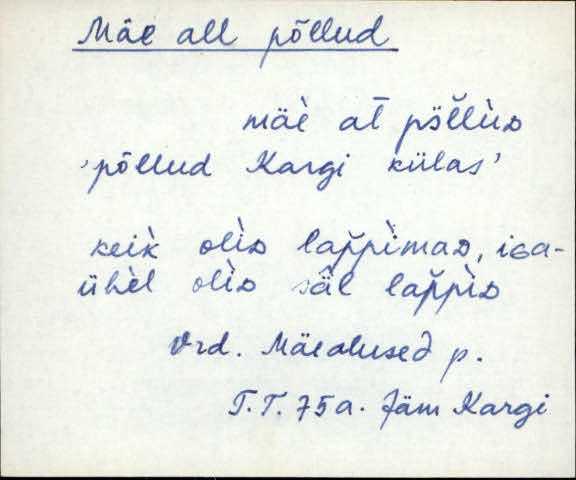 Mäe all põllud
mäè at̄ pö̆ĺĺùᴅ
'põllud Kargi külas'
keìk olìᴅ lap̆pìmaᴅ, iɢa-
ühèl olìᴅ säl lap̆pìᴅ
Vrd. Mäealused p.
T.T. 75a. Jäm Kargi